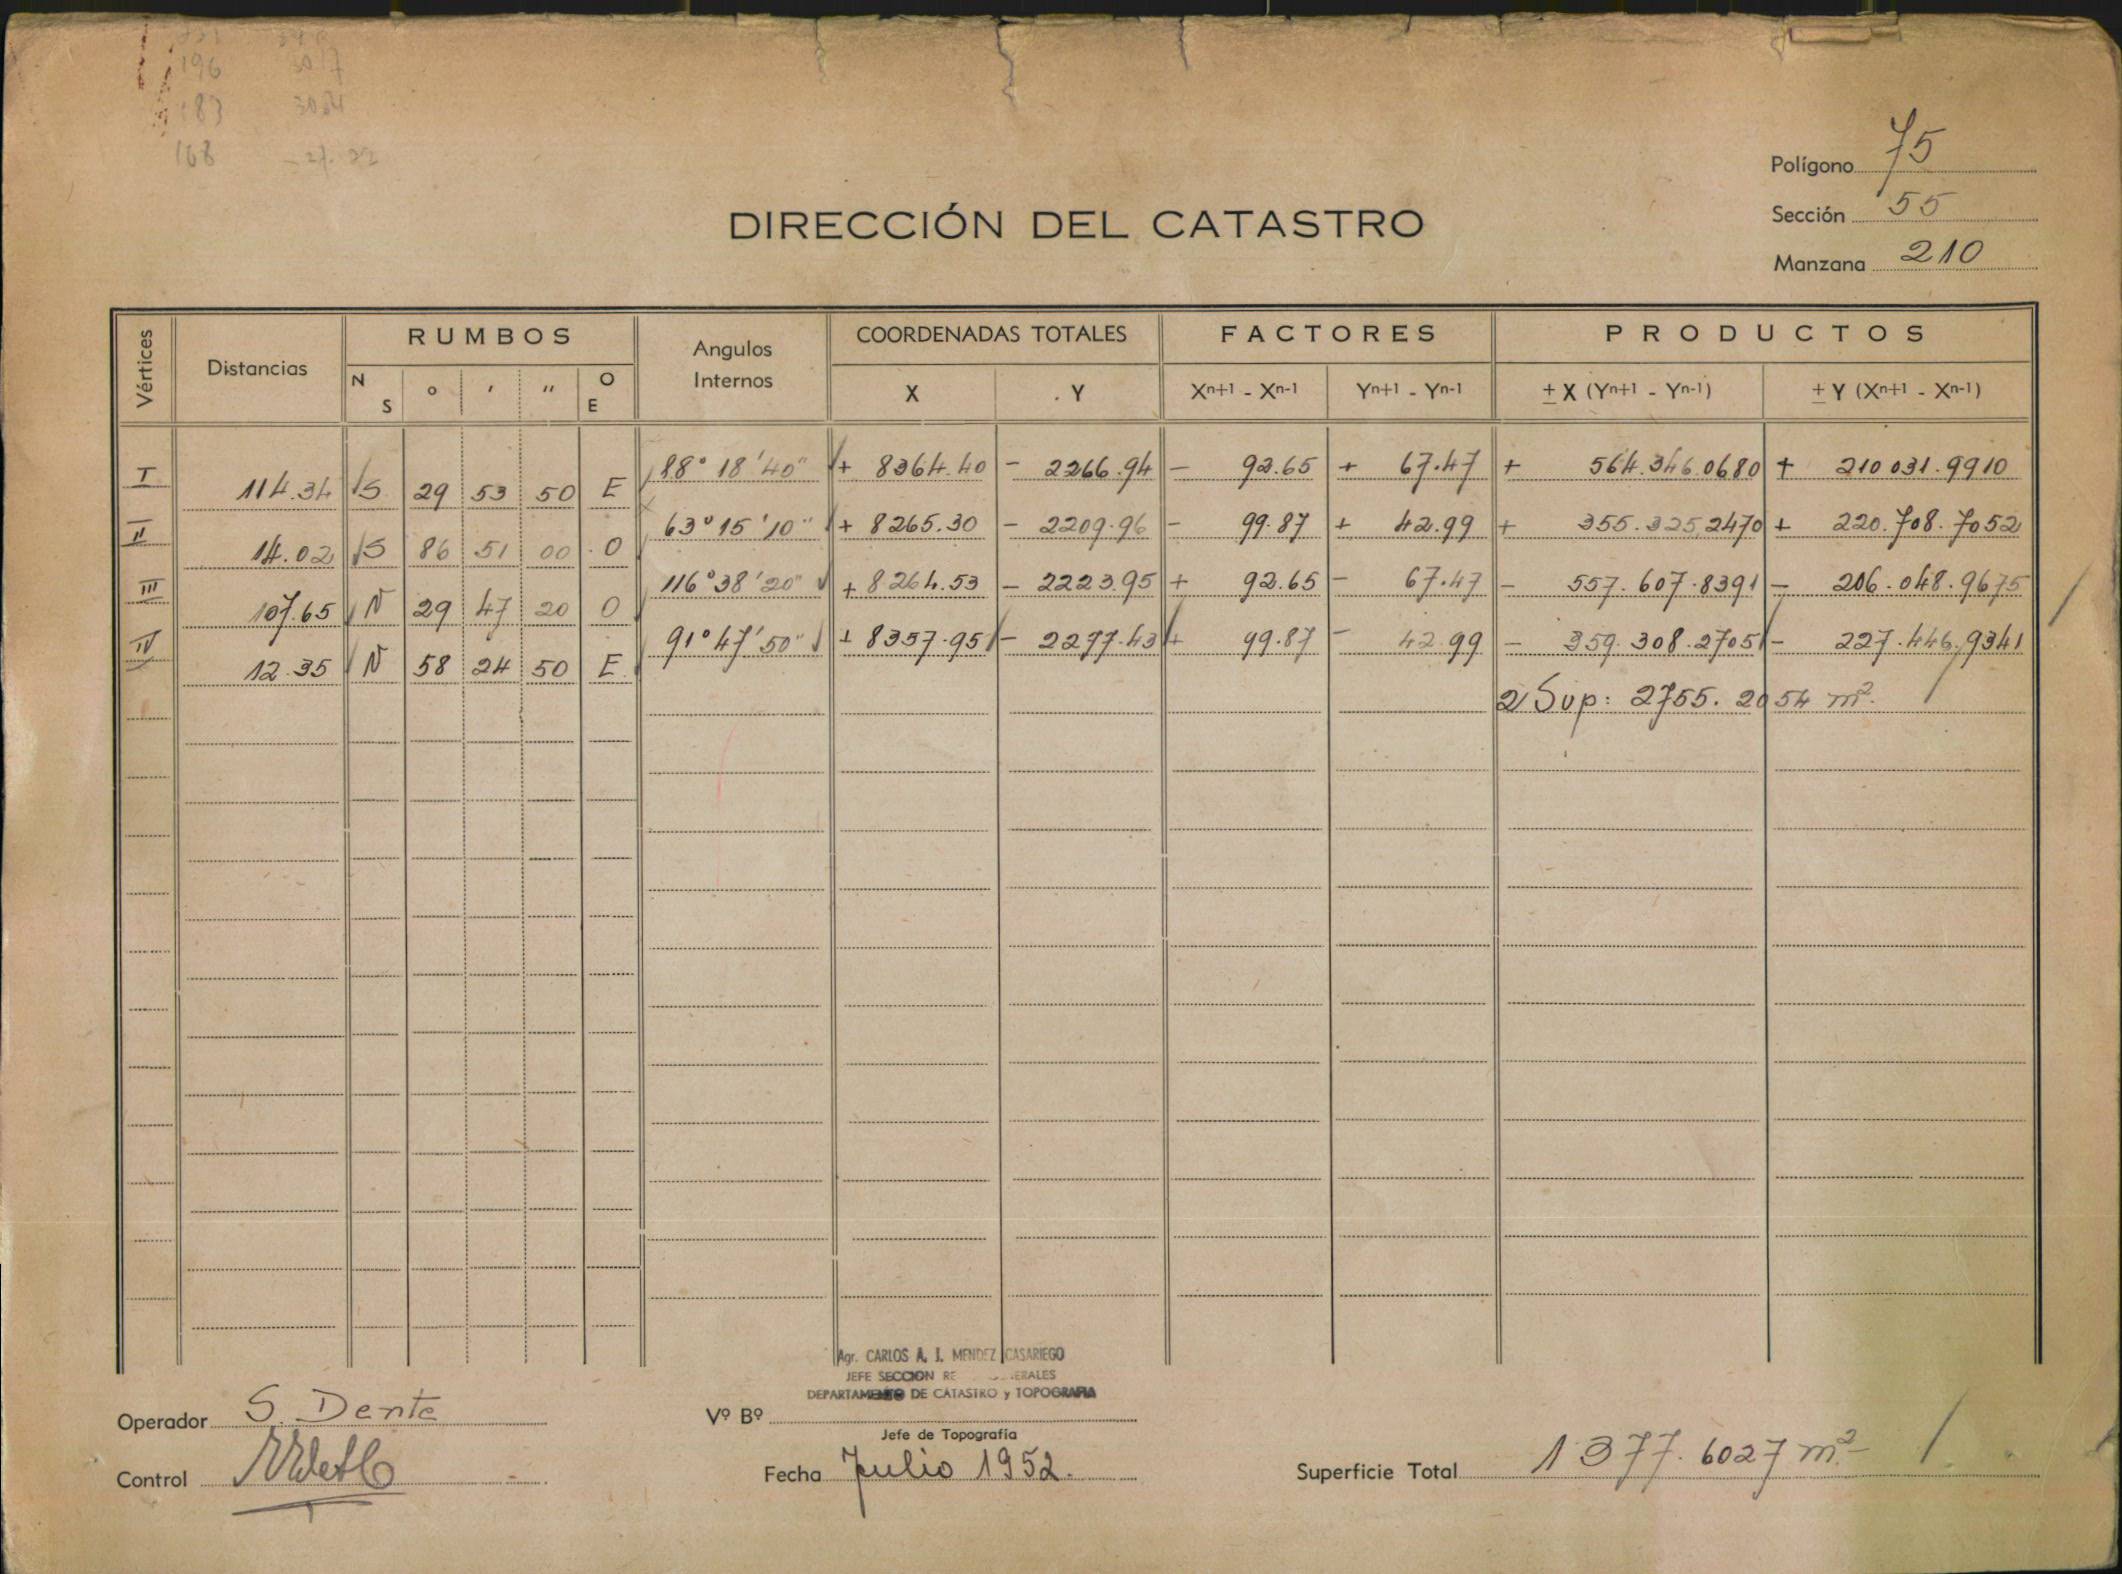 196
183
168
Polígono 75
Sección 55
Manzana 210
DIRECCIÓN DEL CATASTRO
Vértices Distancias RUMBOS Angulos Internos COORDENADAS TOTALES FACTORES PRODUCTOS
N S ° ' '' O E X Y Xn+1 - Xn-1 Yn+1 - Yn-1 ± X (Yn+1 - Yn-1) ± Y (Xn+1 - Xn-1)
I 114.34 S 29 53 50 E 88° 18' 40" + 8364.40 - 2266.94 - 92.65 + 67.47 + 564.346.0680 + 210 031.9910
II 14.02 S 86 51 00 O 63° 15' 10" + 8265.30 - 2209.96 - 99.87 + 42.99 + 355.325,2470 + 220.708.7052
III 107.65 N 29 47 20 O 116° 38' 20" + 8264.53 - 2223.95 + 92.65 - 67.47 - 557.607.8391 - 206.048.9675
IV 12.35 N 58 24 50 E 91° 47' 50" + 8357.95 - 2277.43 + 99.87 - 42.99 - 359.308.2705 - 227.446,9341
2 Sup: 2755.2054 m².
Agr. CARLOS A. J. MENDEZ CASARIEGO
JEFE SECCION
DEPARTAMENTO DE CATASTRO y TOPOGRAFIA
Operador S. Dente
Vº Bº
Jefe de Topografía
Control
Fecha Julio 1952.
Superficie Total 1377.6027 m²